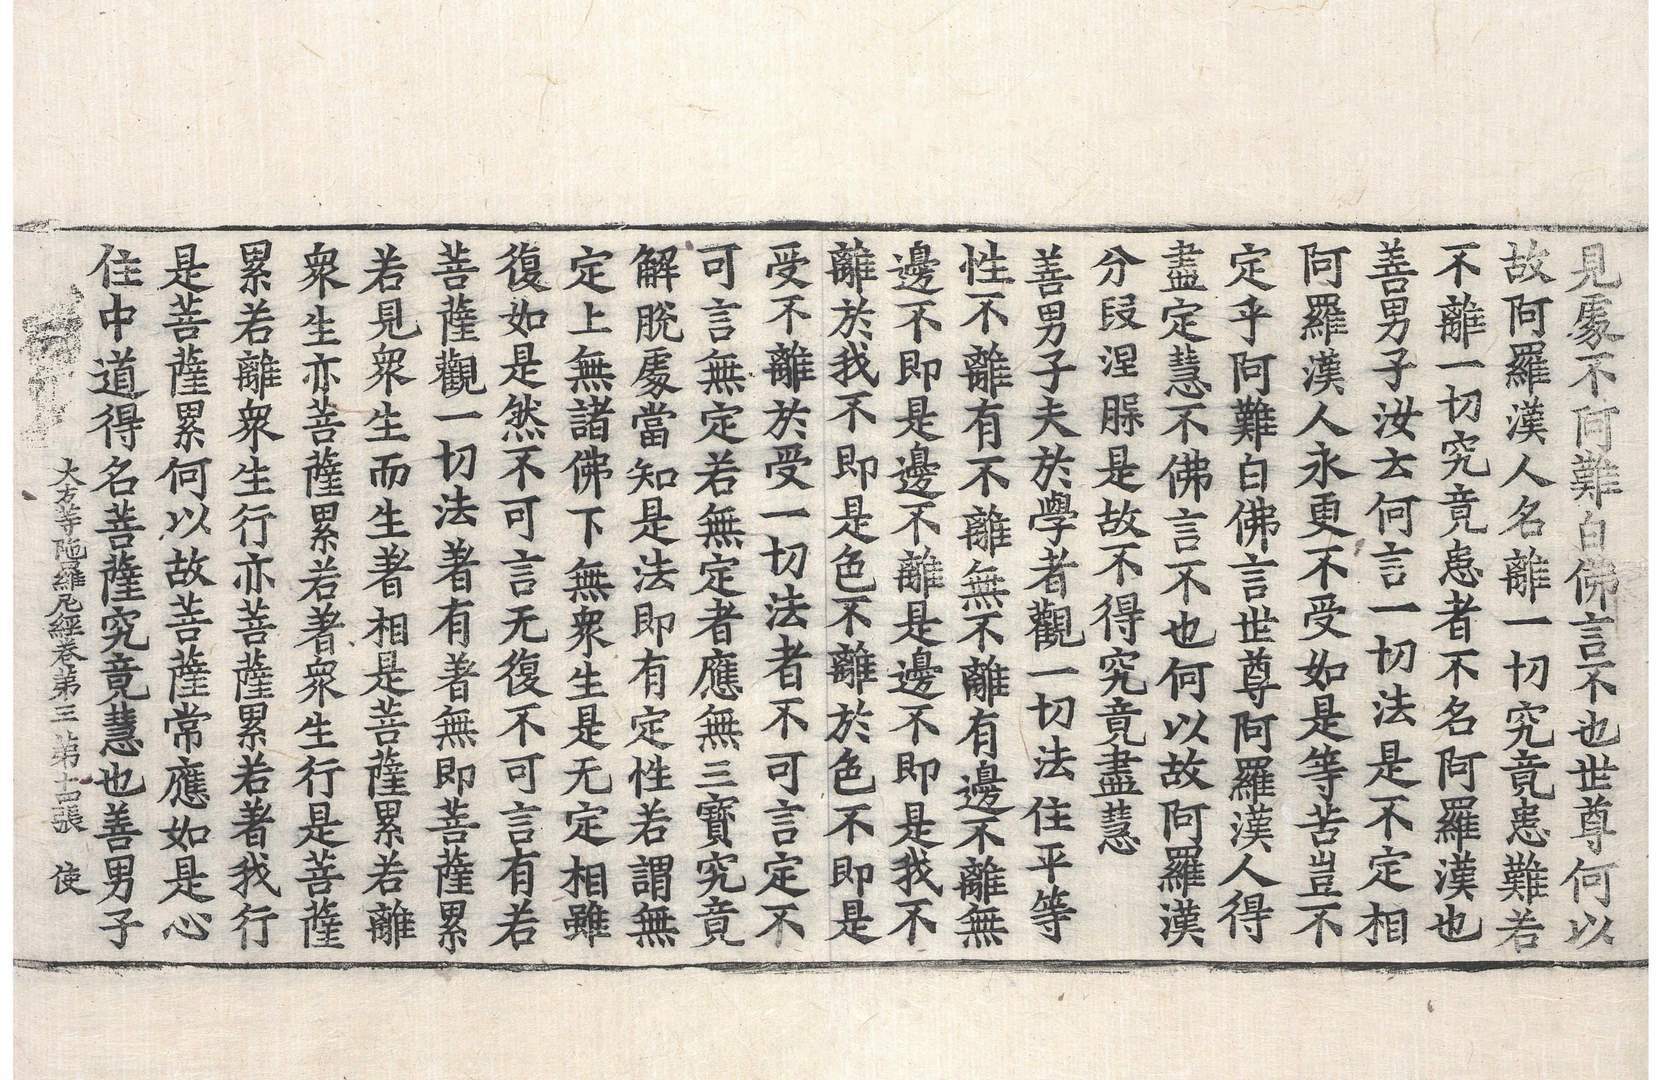 見處不阿難白佛言不也世尊何以
故阿羅漢人名離一切究竟患難若
不離一切究竟患者不名阿羅漢也
善男子汝云何言一切法是不定相
阿羅漢人永更不受如是等苦豈不
定乎阿難白佛言世尊阿羅漢人得
盡定慧不佛言不也何以故阿羅漢
分段涅槃是故不得究竟盡慧
善男子夫於學者觀一切法住平等
性不離有不離無不離有邊不離無
邊不即是邊不離是邊不即是我不
離於我不即是色不離於色不即是
受不離於受一切法者不可言定不
可言無定若無定者應無三寶究竟
解脫處當知是法即有定性若謂無
定上無諸佛下無衆生是无定相雖
復如是然不可言无復不可言有若
菩薩觀一切法著有著無即菩薩累
若見衆生而生著相是菩薩累若離
衆生亦菩薩累若著衆生行是菩薩
累若離衆生行亦菩薩累若著我行
是菩薩累何以故菩薩常應如是心
住中道得名菩薩究竟慧也善男子
大方等陁羅尼經卷第三 第十吉張 使